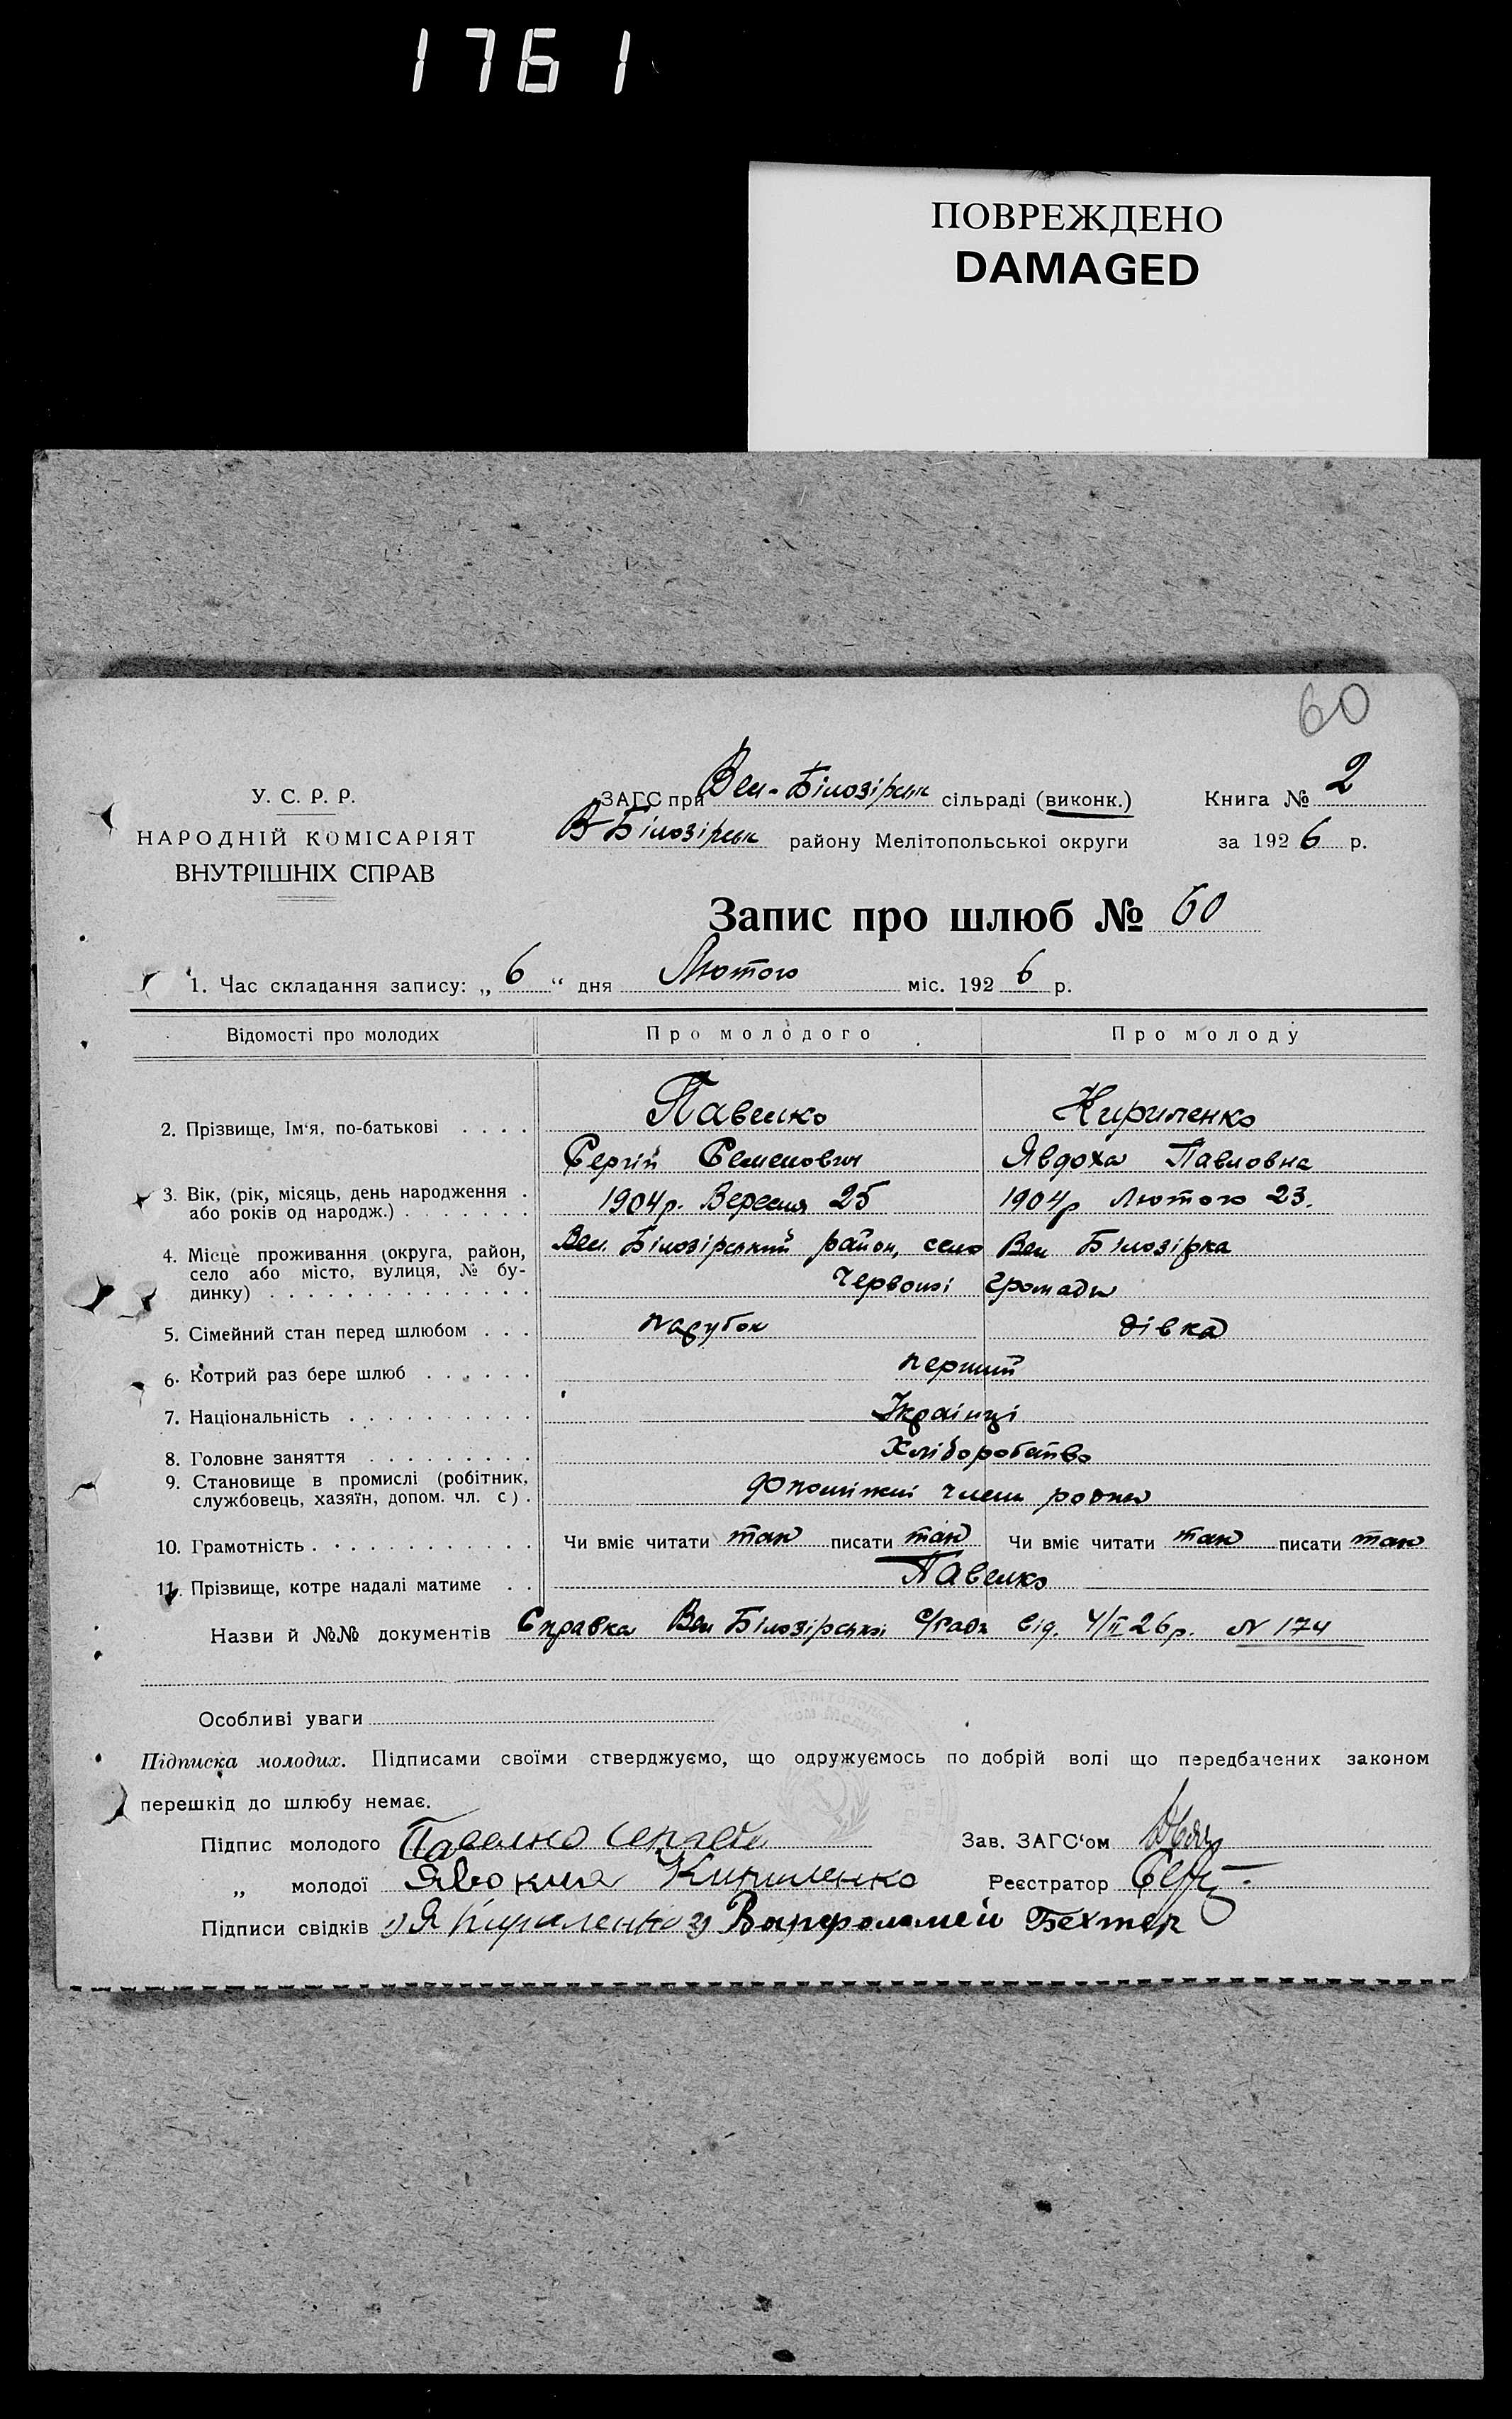 1761
ПОВРЕЖДЕНО
DAMAGED
60
У. С. Р. Р.
НАРОДНІЙ КОМІСАРІЯТ
ВНУТРІШНІХ СПРАВ
ЗАГС при Вел-Білозірськ сільраді (виконк.)
В-Білозірськ району Мелітопольської округи
Книга № 2
за 1926 р.
Запис про шлюб № 60
1. Час складання запису: „6“ дня Лютого міс. 1926 р.
Відомості про молодих Про молодого Про молоду
2. Прізвище, Ім'я, по-батькові . . . . Павелко Кириленко
Сергій Семенович Явдоха Павловна
3. Вік, (рік, місяць, день народження . 1904р. Вересня 25 1904р Лютого 23.
або років од народж.) . . . . . . .
4. Місце проживання (округа, район, Вел. Білозірський район, село Вел Білозірка
село або місто, вулиця, № бу-
динку) . . . . . . . . . . . . . . Червоної громади
5. Сімейний стан перед шлюбом . . . парубок дівка
6. Котрий раз бере шлюб . . . . . . перший
7. Національність . . . . . . . . . . Українці
8. Головне заняття . . . . . . . . . Хліборобство
9. Становище в промислі (робітник,
службовець, хазяїн, допом. чл. с) . допоміжні члени родини
10. Грамотність . . . . . . . . . . . . Чи вміє читати так писати так Чи вміє читати так писати так
11. Прізвище, котре надалі матиме . . Павелко
Назви й №№ документів Справка Вел Білозірської с/ради від. 4/II 26р. N 174
Особливі уваги
Підписка молодих. Підписами своїми стверджуємо, що одружуємось по добрій волі що передбачених законом
перешкід до шлюбу немає.
Підпис молодого Павелко Зав. ЗАГС'ом
„ молодої Кириленко Реєстратор
Підписи свідків 1) Я Кириленко 2) Варфоломей Бехтер